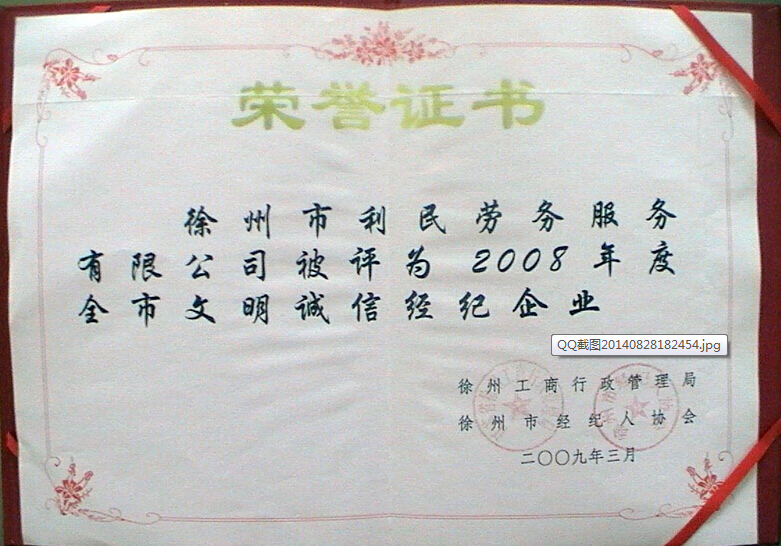 荣誉证书
徐州市利民劳务服务
有限公司被评为2008年度
全市文明诚信经纪企业
QQ截图20140828182454.jpg
徐州工商行政管理局
徐州市经纪人协会
二〇〇九年三月